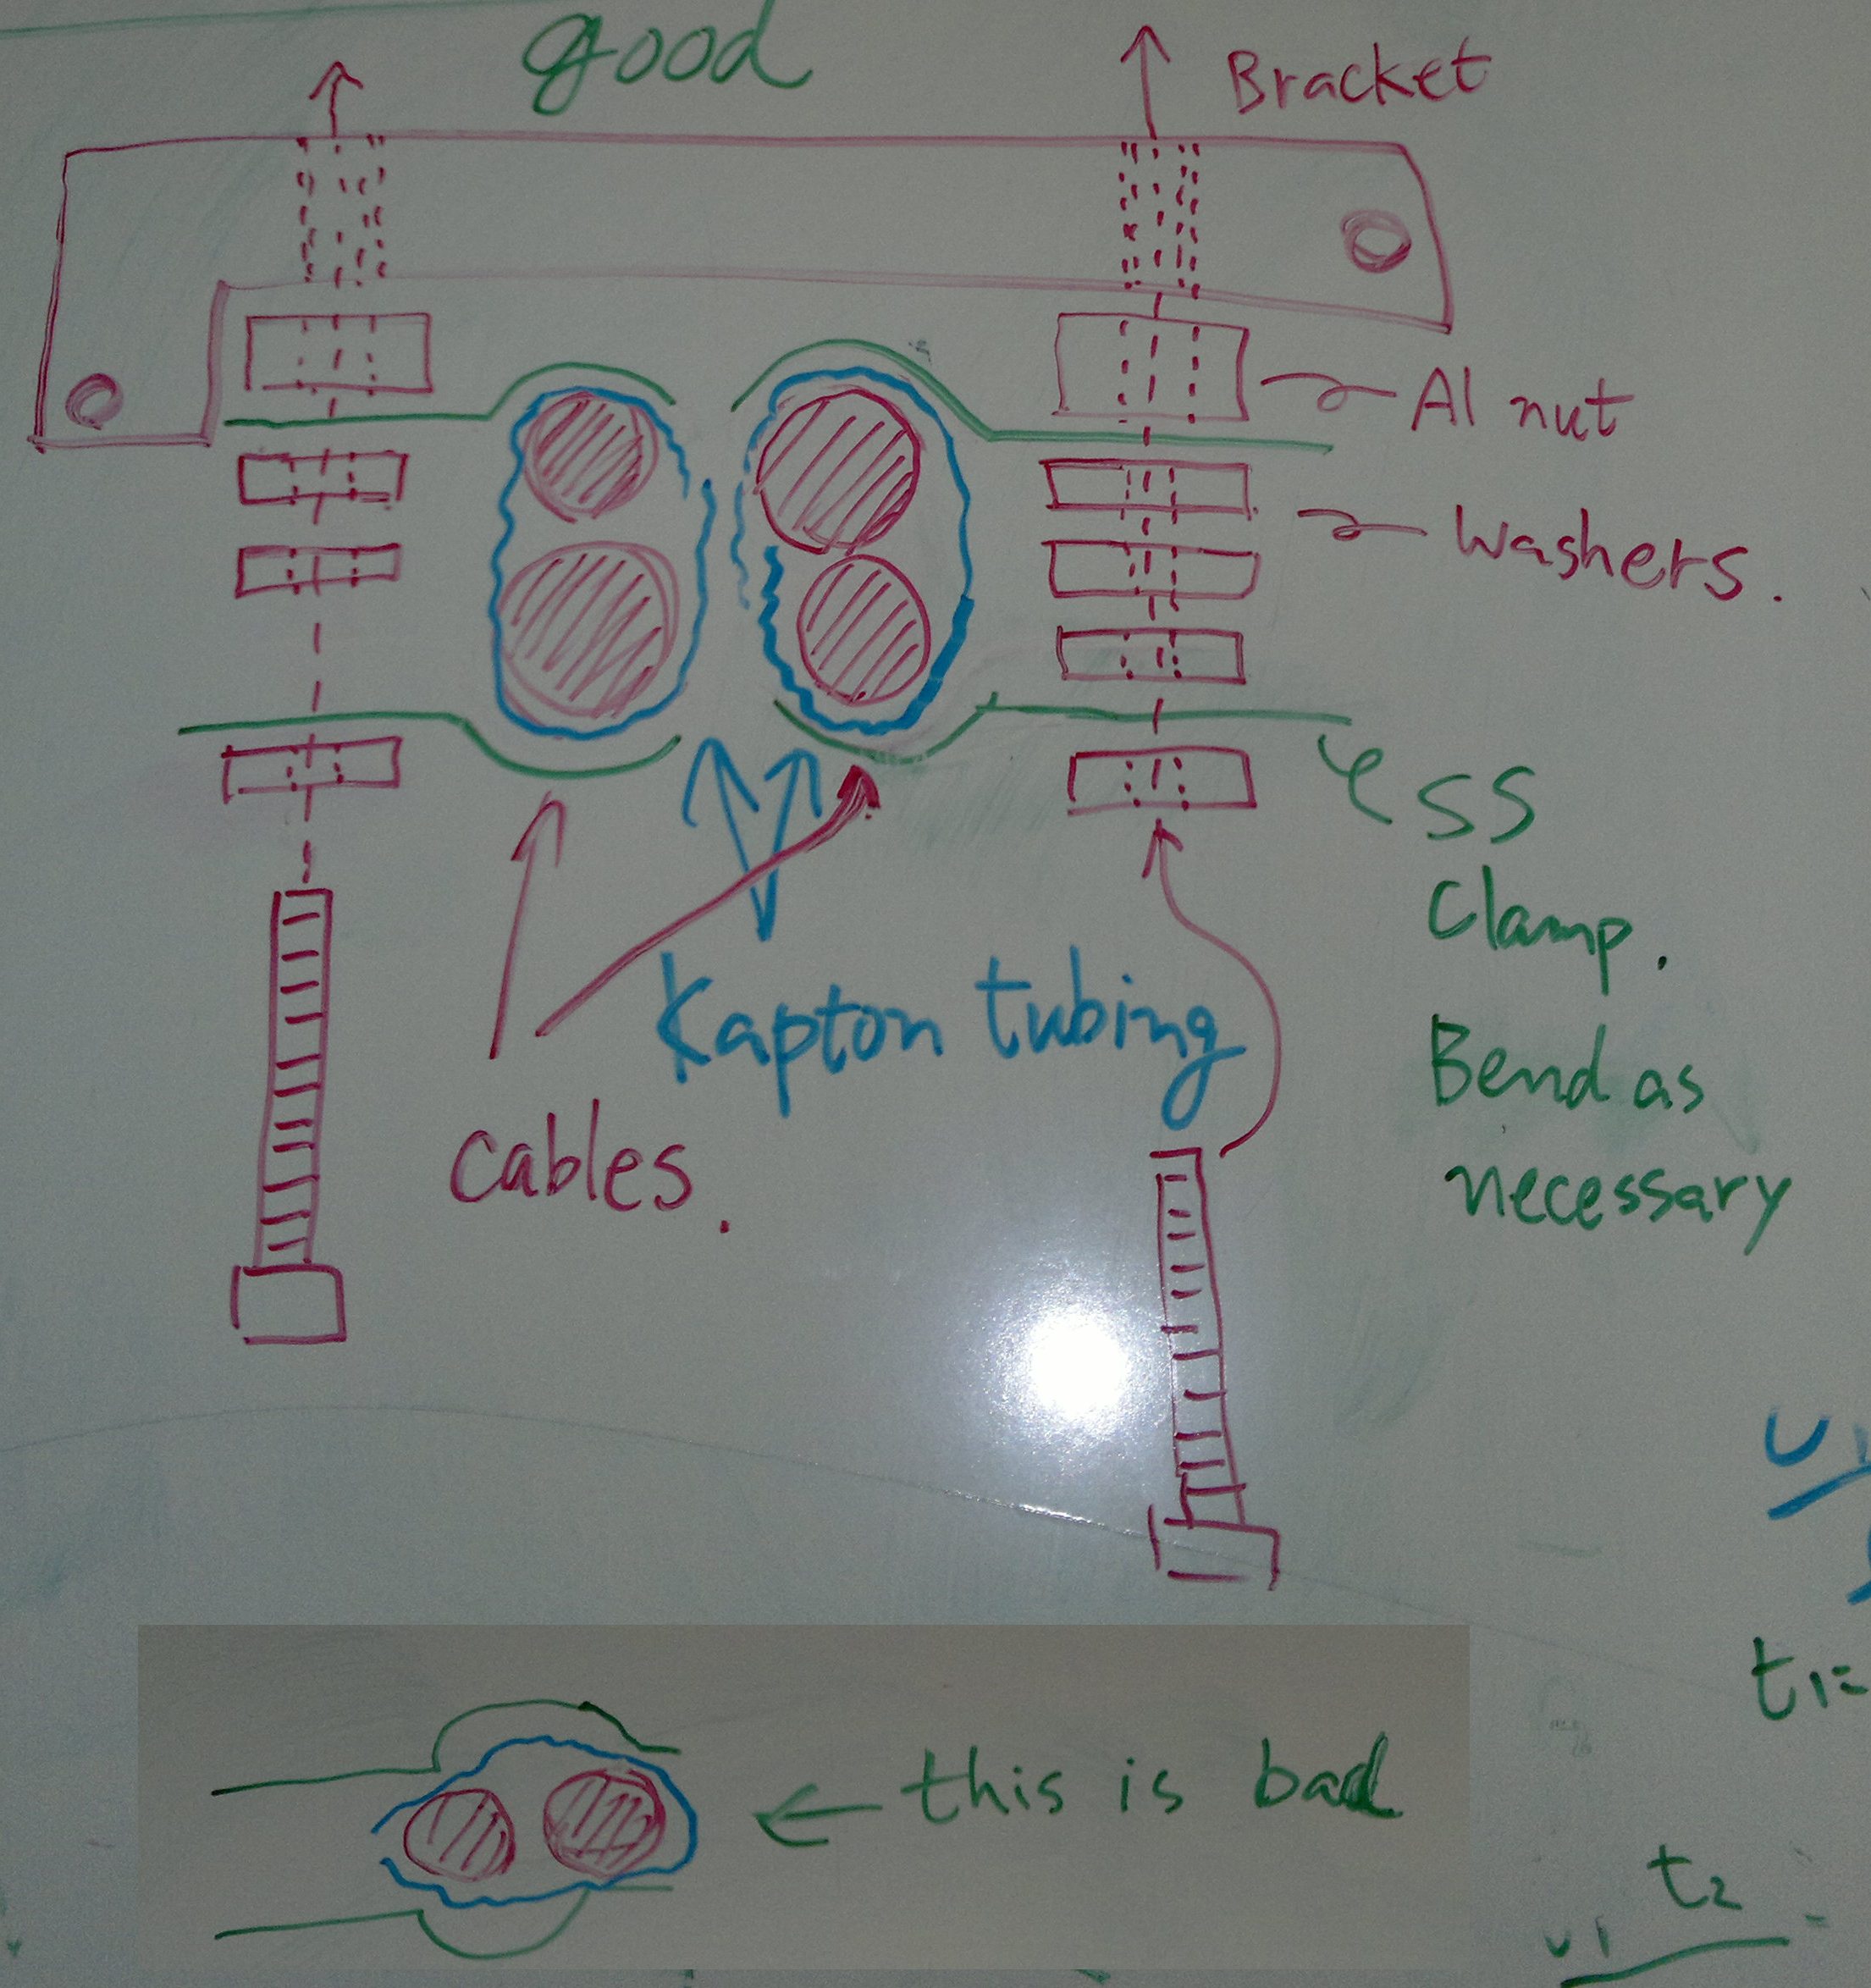 good
Bracket
Al nut
Washers.
SS
Clamp.
Bend as
necessary
Kapton tubing
cables.
t1=
this is bad
t2